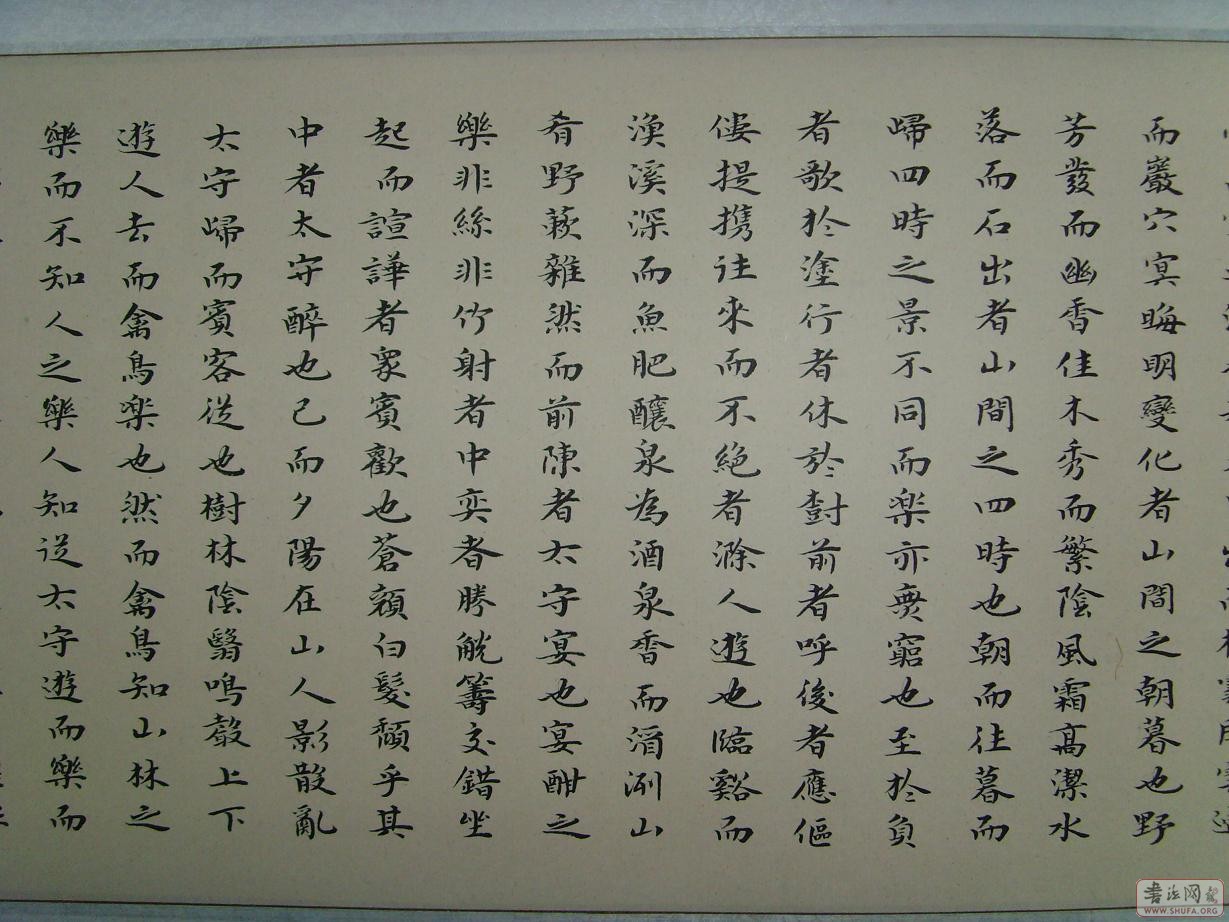 而巖穴冥晦明變化者山間之朝暮也野
芳發而幽香佳木秀而繁陰風霜髙潔水
落而石出者山間之四時也朝而往暮而
歸四時之景不同而楽亦無窮也至於負
者歌於塗行者休於樹前者呼後者應傴
僂提携往來而不絶者滁人遊也臨谿而
漁溪深而魚肥釀泉為酒泉香而酒洌山
肴野蔌雜然而前陳者太守宴也宴酣之
樂非絲非竹射者中奕者勝觥籌交錯坐
起而諠譁者衆賓歡也蒼顔白髮頽乎其
中者太守醉也已而夕陽在山人影散亂
太守歸而賓客從也樹林陰翳鳴聲上下
遊人去而禽鳥楽也然而禽鳥知山林之
樂而不知人之樂人知従太守遊而樂而
書法网
WWW.SHUFA.ORG